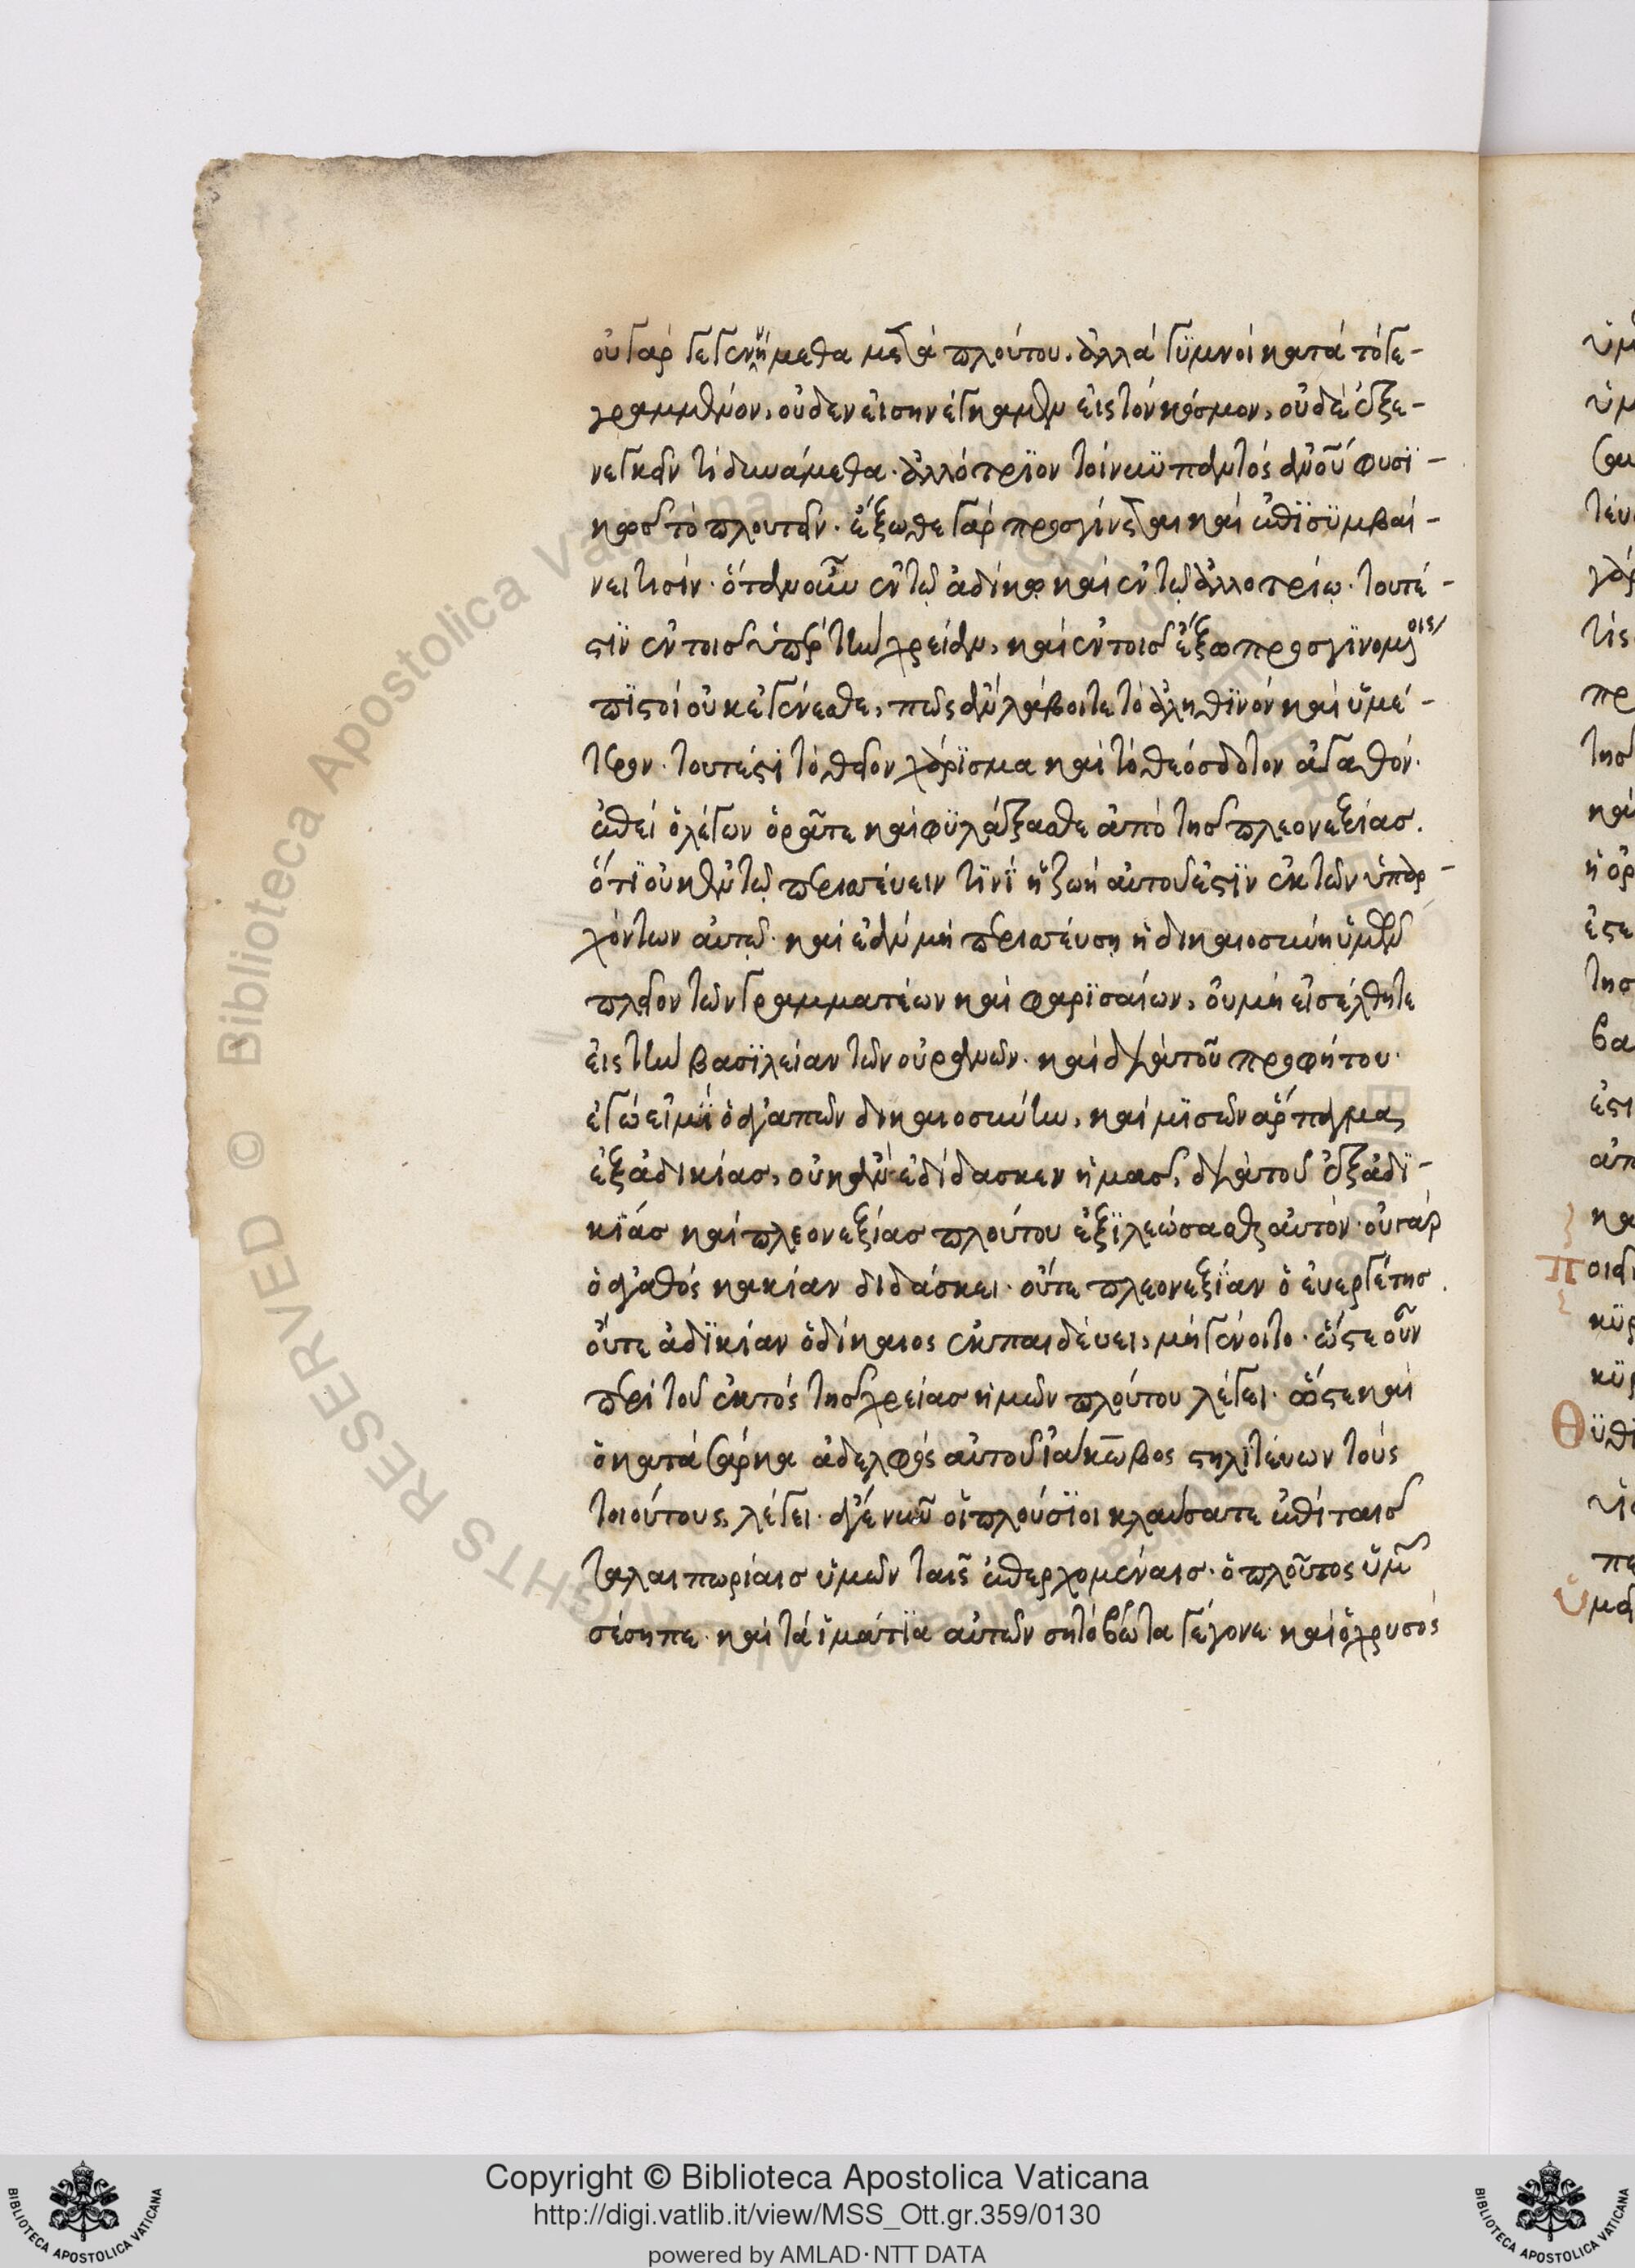 οὐ γὰρ γεγεννήμεθα μετὰ πλούτου, ἀλλὰ γϋμνοὶ κατὰ τὸ γε-
γραμμένον, οὐδὲν εἰσηνέγκαμεν εἰς τὸν κόσμον, οὐδὲ ἐξε-
νεγκεῖν τί δυνάμεθα. ἀλλότρϊον τοίνυϋ παντὸς ἀνοῦ φυσϊ-
κῶσ τὸ πλουτεῖν. ἔξωθε γὰρ προσγίνεται καὶ ἐπϊσϋμβαί-
νει τισίν. ὅταν οὖν ἐν τῷ ἀδίκῳ καὶ ἐν τῷ ἀλλοτρίῳ. τουτέ-
στϊν ἐν τοισ ὑπὲρ τὴν χρείαν, καὶ ἐν τοισ ἔξω προσγϊνομένοις
πϊστοὶ οὐκ ἐγένεσθε, πῶς ἂν λάβοιτε τὸ ἀληθϊνὸν καὶ ὑμέ-
τερον. τουτέστι τὸ θεῖον χάρϊσμα καὶ τὸ θεόσδοτον ἀγαθόν.
ἐπεὶ ὁ λέγων ὁρᾶτε καὶ φϋλάξασθε ἀπὸ τησ πλεονεξίασ.
ὅτϊ οὐκ ἐν τῷ περισσέυειν τϊνϊ ἡ ζωὴ αὐτοῦ ἐστϊν ἐκ τῶν ὑπαρ-
χόντων αὐτῷ. καὶ ἐὰν μὴ περισσέυσῃ ἡ δικαιοσύνη ὑμῶν
πλεῖον τῶν γραμματέων καὶ φαρϊσαίων, οὐ μὴ εἰσέλθητε
εἰς τὴν βασϊλείαν τῶν οὐρανῶν. καὶ διὰ τοῦ προφήτου.
ἐγώ εἰμϊ ὁ ἀγαπῶν δικαιοσύνην, καὶ μϊσῶν ἁρπάγμας
ἐξ ἀδικίασ, οὐκ ἂν ἐδίδασκεν ἡμασ, διὰ τοῦ ἐξ ἀδϊ-
κϊάσ καὶ πλεονεξίασ πλούτου ἐξϊλεώσασθαι αὐτόν. οὐ γὰρ
ὁ ἀγαθὸς κακίαν διδάσκει. οὔτε πλεονεξϊαν ὁ ἐυεργέτησ.
οὔτε ἀδϊκίαν ὁ δίκαιος ἐκπαιδέυει, μὴ γένοιτο. ὥστε οὖν
περὶ τοῦ ἐκτὸς τησ χρείασ ἡμῶν πλούτου λέγει. ὥστε καὶ
ὁ κατὰ σάρκα ἀδελφὸς αὐτοῦ ϊάκωβος στηλϊτέυων τοὺς
τοιούτους, λέγει. ἄγε νῦν οἱ πλούσϊοι κλαύσατε ἐπὶ ταισ
ταλαιπωρίαισ ὑμῶν ταῖς ἐπερχομέναισ. ὁ πλοῦτος ὑμῶν
σέσηπε. καὶ τὰ ἱμάτϊα αὐτῶν σητόβρωτα γέγονε. καὶ ὁ χρυσὸς
Copyright © Biblioteca Apostolica Vaticana
http://digi.vatlib.it/view/MSS_Ott.gr.359/0130
powered by AMLAD·NTT DATA